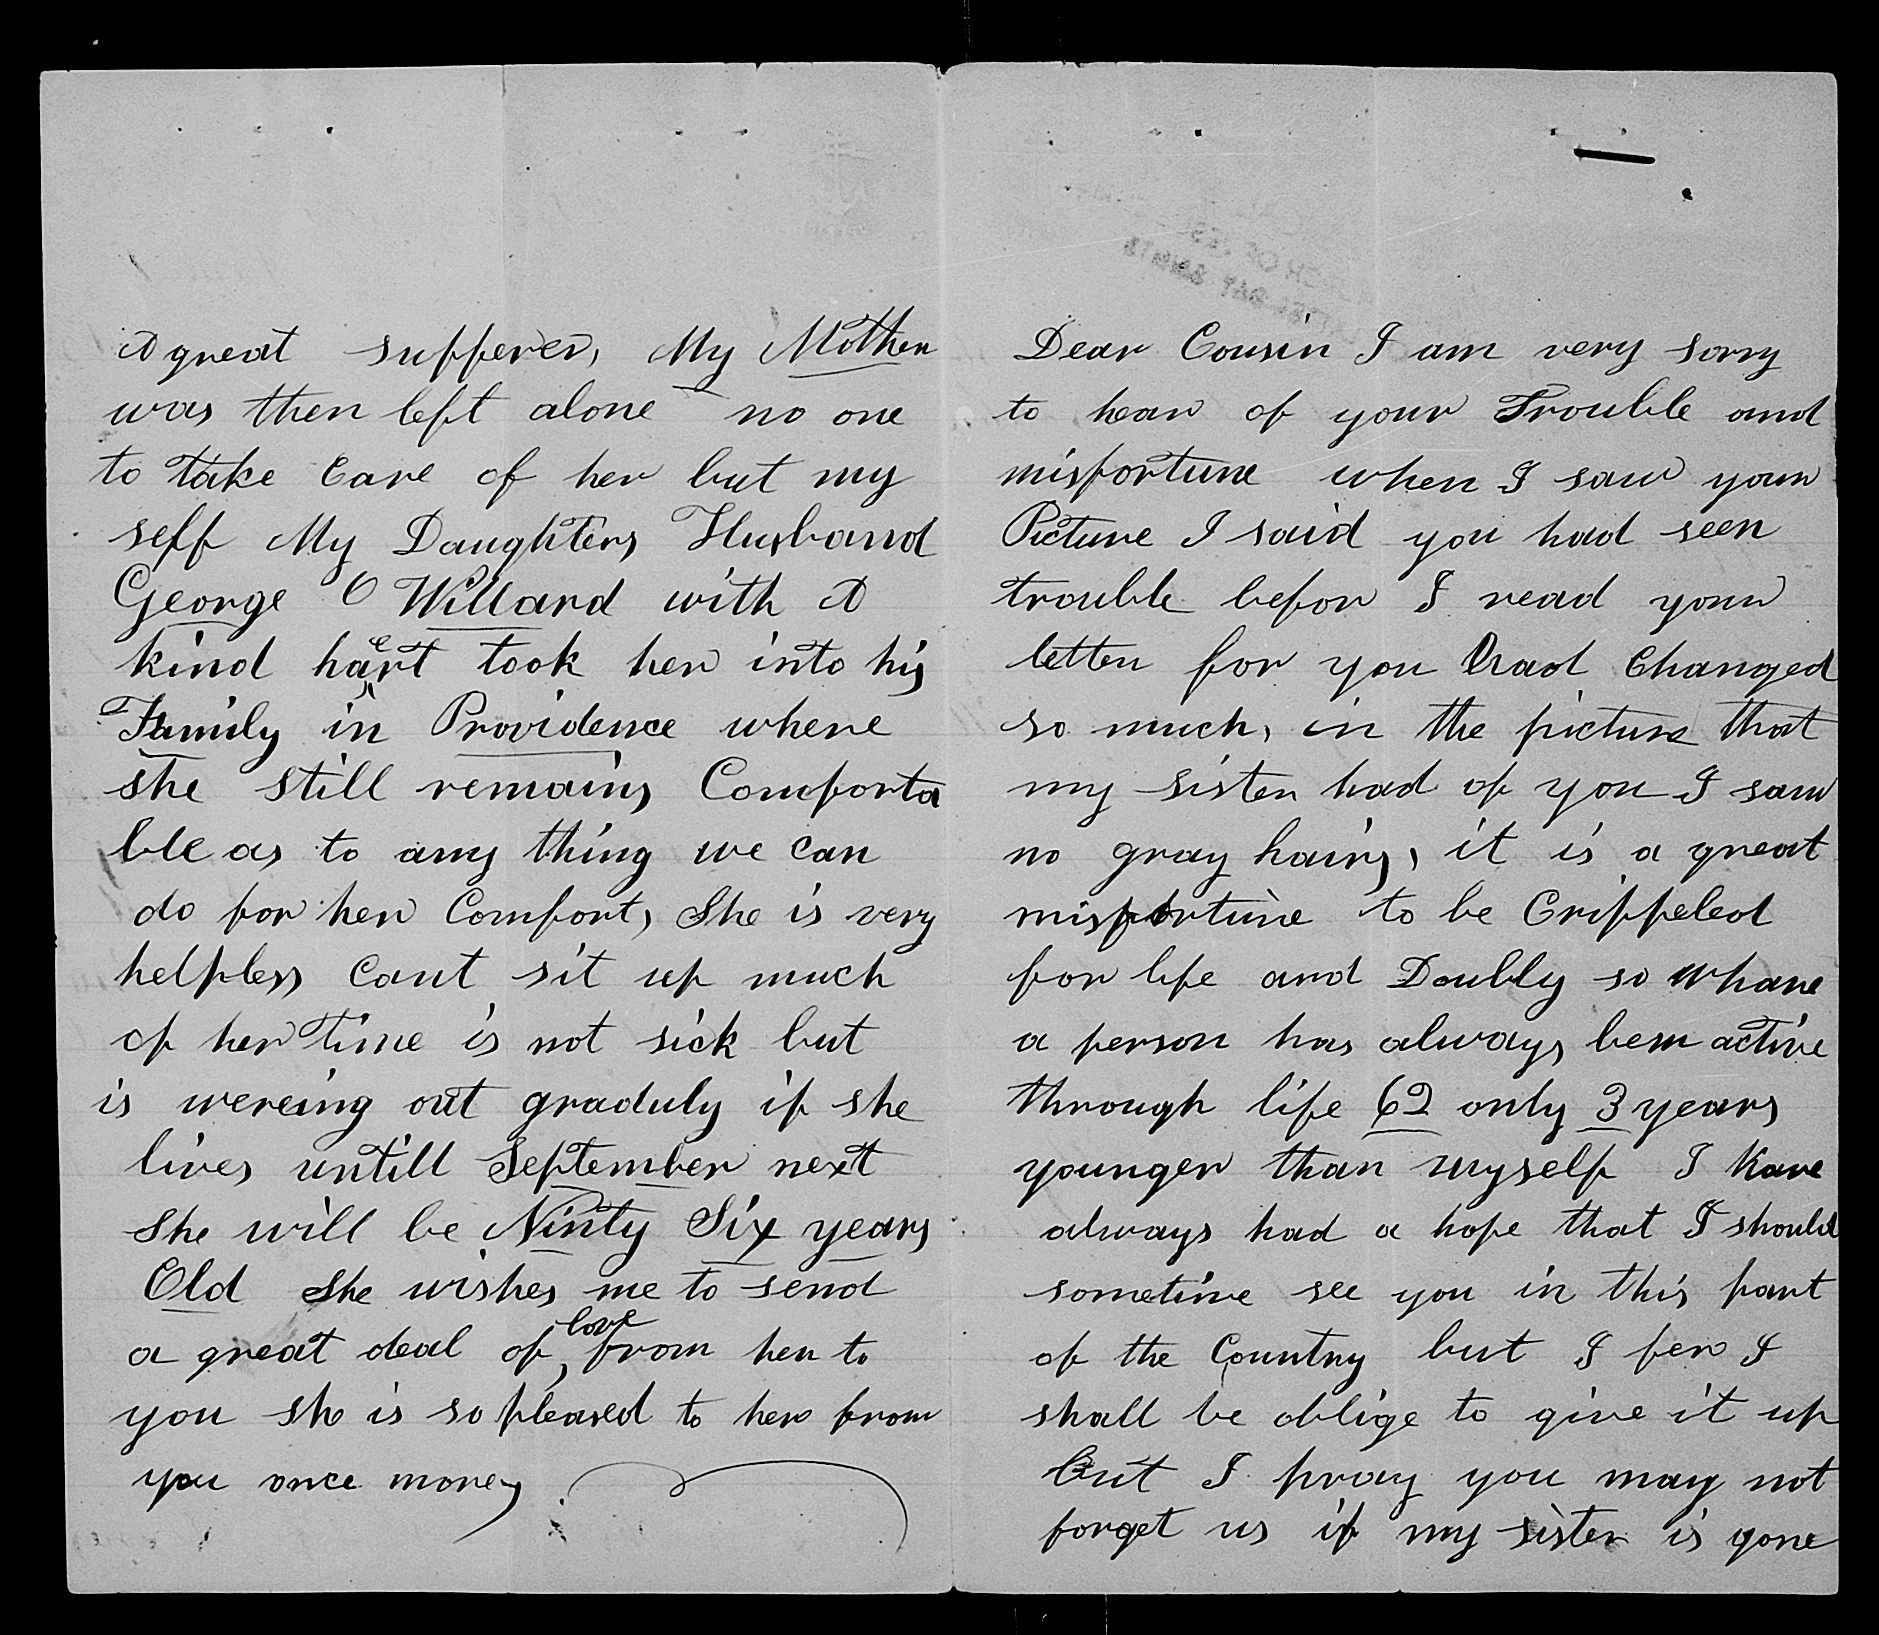 A great supferer, My Mother
was then left alone no one
to take Care of her but my
self My Daughters Husband
George O Willard with A
kind heart took her into his
Family in Providence where
she still remains Comforta
ble as to any thing we can
do for her Comfort, She is very
helpless Cant sit up much
of her time is not sick but
is wereing out graduly if she
lives untill September next
She will be Ninty Six years
Old She wishes me to send
a great deal of love from her to
you sho is so pleased to her from
you once more,
Dear Cousin I am very sorry
to hear of your Trouble and
misfortune when I saw your
Picture I said you had seen
trouble befor I read your
letter for you had Changed
so much, in the picture that
my sister had of you I saw
no gray hairs, it is a great
misfortune to be Crippeled
for life and Doubly so whare
a person has always been active
through life 62 only 3 years
younger than myself I have
always had a hope that I should
sometime see you in this part
of the Country but I fer I
shall be oblige to give it up
But I pray you may not
forget us if my sister is gone